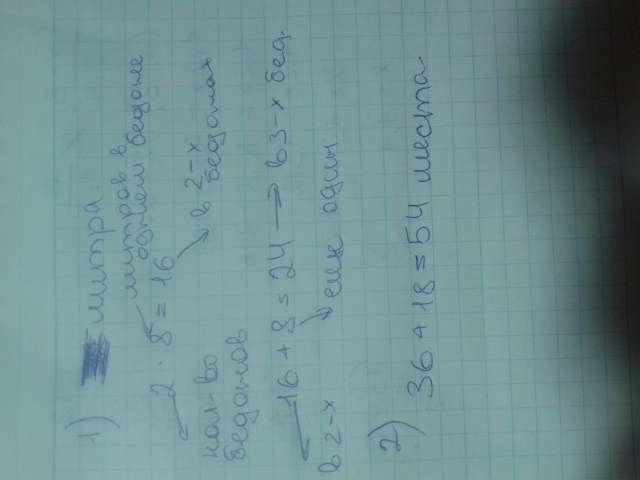 1) литра.
литров в
одном бедоне
2 · 8 = 16
кол-во
бедонов
в 2-х
бедонах
16 + 8 = 24 → в 3-х бед.
в 2-х
еще один
2)
36 + 18 = 54 места